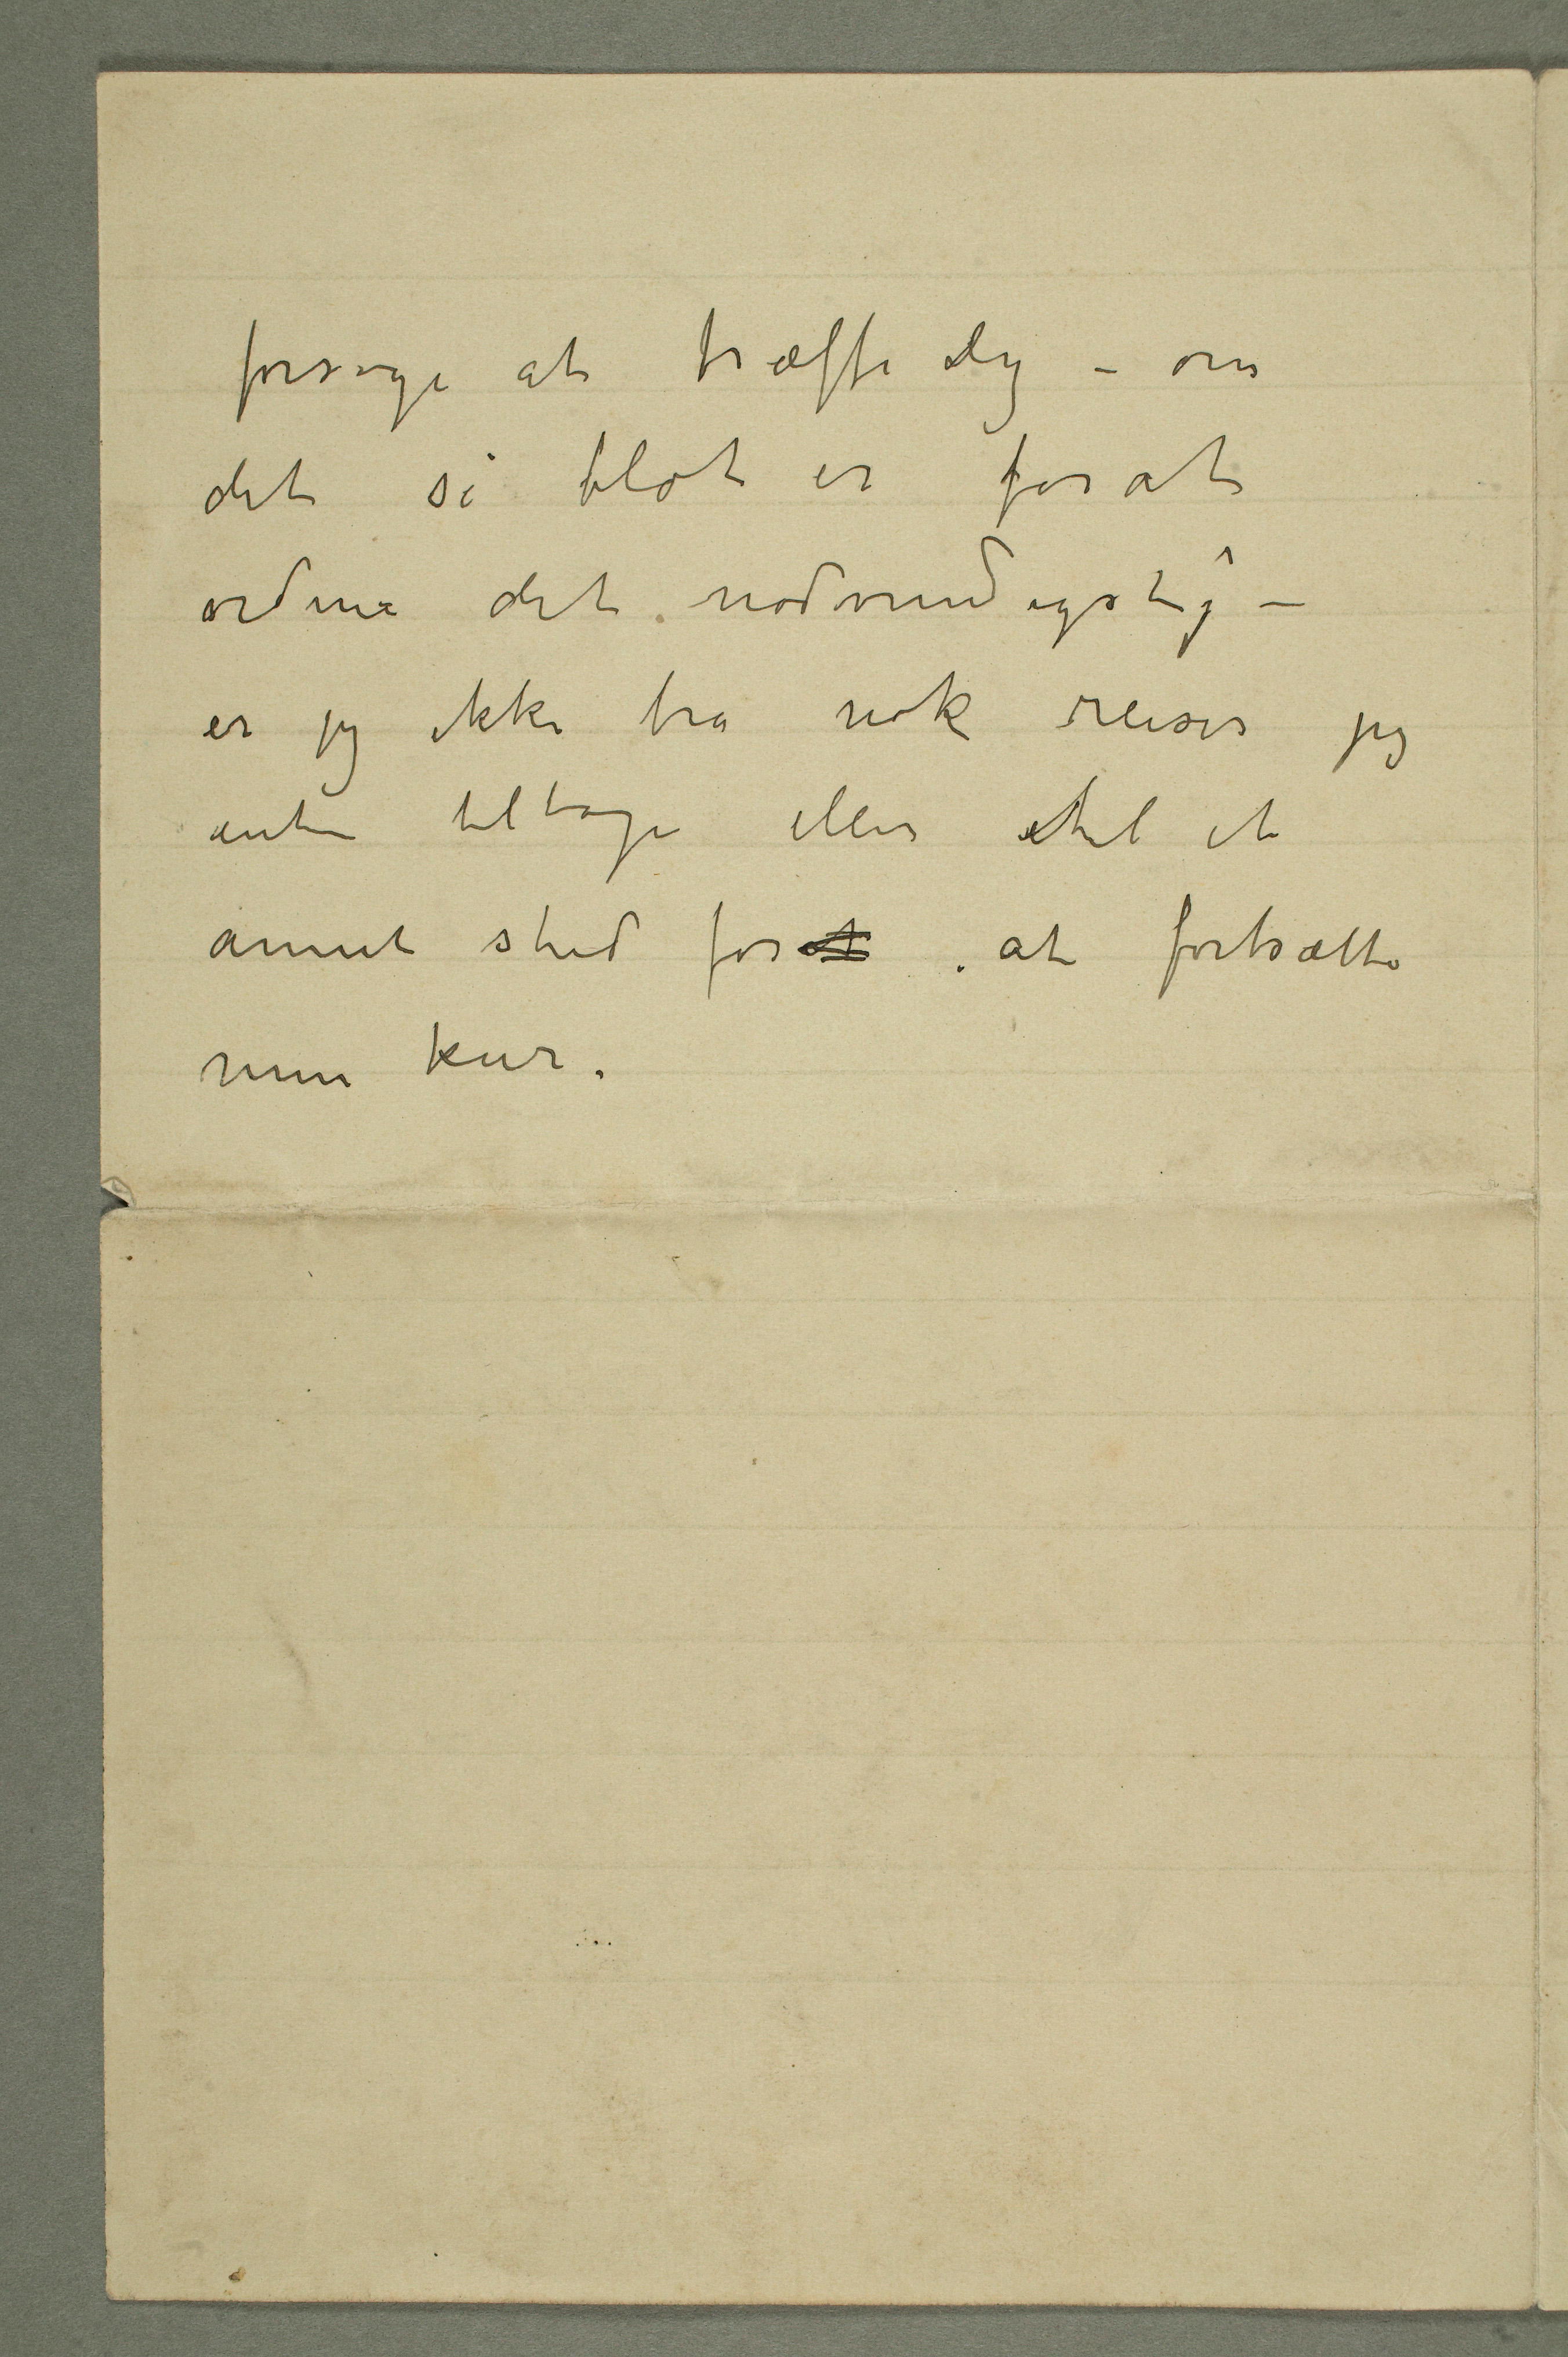 forsøge at træffe Dig – om
det så blot er for at
ordne det nødvendigste –
er jeg ikke bra nok reiser jeg
enten tilbage eller til et
annet sted for at at fortsætte
min kur.